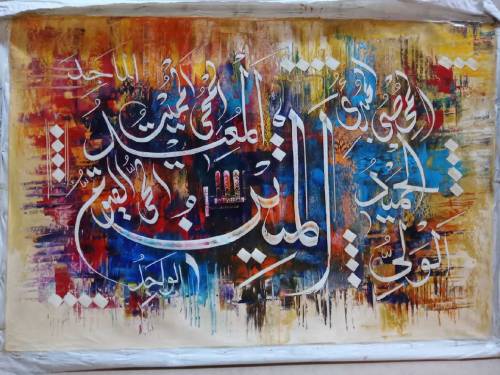 المتين
الولي
الحميد
المحصي
المبدئ
المعيد
المحيي
المميت
الحي
القيوم
الواجد
الماجد